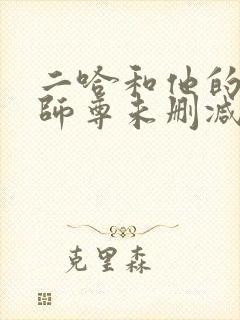 二哈和他的
師尊未刪减
克里森